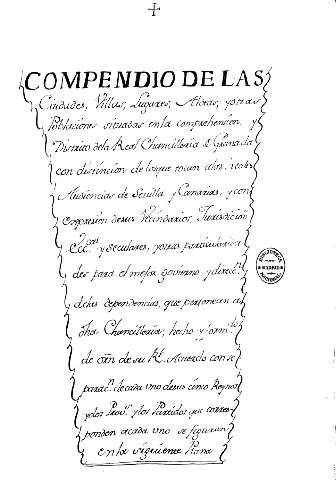 COMPENDIO DE LAS
Ciudades, Villas, Lugares, Aldeas, y otras
Poblaciones situadas en la comprehension, y
Distrito de la Real Chancilleria de Granada
con distincion de los que tocan a las reales
Audiencias de Sevilla y Canarias, y con
Expresion de sus Vecindarios, Jurisdicion
Ecc.cas y seculares, y otras particularida
des para el mejor govierno y direc.n
de las dependencias, que pertenecen a
dha Chancilleria, hecho y
de orn de su Rl. Acuerdo con se
parac.n de cada uno de sus cinco Reynos
y dos Prov.s y los Partidos que corres
ponden a cada uno se figuran
en la siguiente Plana
BIBLIOTECA
NACIONAL
MADRID